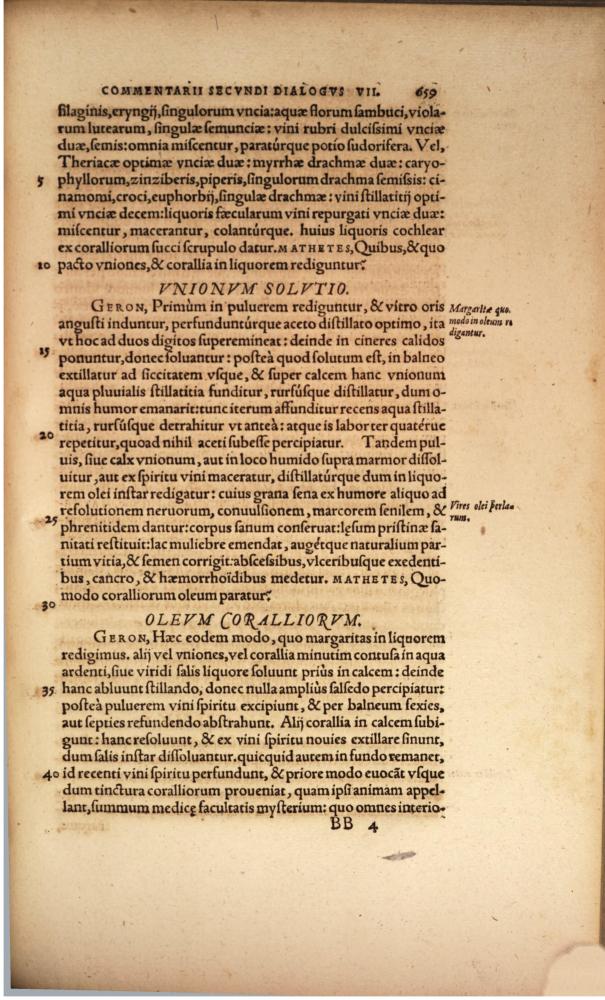 COMMENTARII SECVNDI DIALOGVS VII. 659
filaginis,eryngij,singulorum vncia:aquæ florum sambuci,viola-
rum lutearum, singulæ semunciæ: vini rubri dulcissimi vnciæ
duæ,semis:omnia miscentur, paratúrque potio sudorifera. Vel,
Theriacæ optimæ vnciæ duæ: myrrhæ drachmæ duæ: caryo-
5 phyllorum,zinziberis,piperis,singulorum drachma semissis: ci-
namomi,croci,euphorbij,singulæ drachmæ: vini stillatitij opti-
mi vnciæ decem:liquoris fæcularum vini repurgati vnciæ duæ:
miscentur, macerantur, colantúrque. huius liquoris cochlear
ex coralliorum succi scrupulo datur. MATHETES, Quibus,& quo
10 pacto vniones,& corallia in liquorem rediguntur?
VNIONVM SOLVTIO.
GERON, Primùm in puluerem rediguntur, & vitro oris
angusti induntur, perfundúntúrque aceto distillato optimo, ita
vt hoc ad duos digitos superemineat: deinde in cineres calidos
15 ponuntur,donec soluantur: posteà quod solutum est, in balneo
extillatur ad siccitatem vsque, & super calcem hanc vnionum
aqua pluuialis stillatitia funditur, rursúsque distillatur, dum o-
mnis humor emanarit:tunc iterum affunditur recens aqua stilla-
titia, rursúsque detrahitur vt anteà: atque is labor ter quatérue
20 repetitur,quoad nihil aceti subesse percipiatur. Tandem pul-
uis, siue calx vnionum, aut in loco humido supra marmor dissol-
uitur,aut ex spiritu vini maceratur, distillatúrque dum in liquo-
rem olei instar redigatur: cuius grana sena ex humore aliquo ad
resolutionem neruorum, conuulsionem, marcorem senilem, &
25 phrenitidem dantur:corpus sanum conseruat:lęsum pristinæ sa-
nitati restituit:lac muliebre emendat, augétque naturalium par-
tium vitia,& semen corrigit:abscessibus,vlceribusque exedenti-
bus, cancro, & hæmorrhoïdibus medetur. MATHETES, Quo-
modo coralliorum oleum paratur?
30
Margaritæ quo-
modo in oleum re
digantur.
Vires olei perla-
rum.
OLEVM CORALLIORVM.
GERON, Hæc eodem modo, quo margaritas in liquorem
redigimus. alij vel vniones,vel corallia minutim contusa in aqua
ardenti,siue viridi salis liquore soluunt priùs in calcem: deinde
35 hanc abluunt stillando, donec nulla ampliùs salsedo percipiatur:
posteà puluerem vini spiritu excipiunt, & per balneum sexies,
aut septies refundendo abstrahunt. Alij corallia in calcem subi-
gunt: hanc resoluunt, & ex vini spiritu nouies extillare sinunt,
dum salis instar dissoluantur.quicquid autem in fundo remanet,
40 id recenti vini spiritu perfundunt, & priore modo euocāt vsque
dum tinctura coralliorum proueniat, quam ipsi animam appel-
lant,summum medicę facultatis mysterium: quo omnes interio-
BB 4